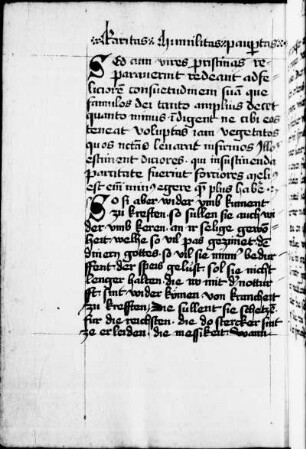 Karitas Humilitas paupertas
Sed cum vires pristinas re
paraverint redeant ad fe
liciorē consuetudinem suā que
famulos dei tanto amplius decet
quanto minus īdigent ne cibi eos
teneat voluptas iam vegetatos
quos necās levarat infirmos Illos
estiment diciores qui in sustinenda
paritate fuerint fortiores meli9
est eni minus egere qm plus habere
So si aber wider vmb kument
zu kreften so süllen sie auch wi
der vmb keren an ir selige gewō
heit welhe so vil pas geziment dē
dinern gottes so vil sie minn' bedur
ffent der speis gelust sol sie nicht
lenger halten die wo mit d' nottur
fft sint wider kömen von kranckheit
zu krefften Die süllent sie schetzē
für die reichsten die do stercker sint
ze erleiden die messikeit Wann